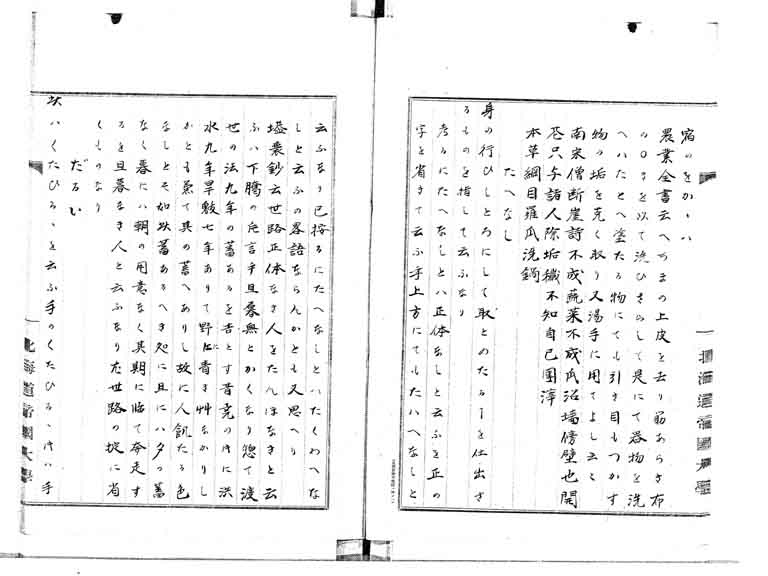 宿のをかゝハ
農業全書云へちまの上皮を去り筋あらき布
のことくを以て洗ひさらして是にて器物を洗
へハいたとへ塗たる物にても引き目もつかす
物の垢を克く取り又湯手に用てよしと云
南宋僧断崖詩不成蔬菜不成瓜沿墻傍壁也開
花只与諸人除垢穢不知自己團藞
本草綱目羅瓜洗鍋
たへなし
身の行ひしとろにして取とめたる事を仕出さ
るものを指して云ふなり
考るにたへなしとハ正体なしと云ふを正の
字を省きて云ふ乎上方にてもたハへなしと
云ふなり已按るにたへなしとハたくわへな
しと云ふの畧語ならんかとも又思へり
壒嚢鈔云世路正体なき人をたんほなきと云
ふハ下臈の卮言乎旦暮無とかくなり惣て渡
世の法九年の蓄あるを吉とす昔尭の時に洪
水九年旱魃七年ありて野に青き艸なかりし
かとも兼て其の蓄へありし故に人飢たる色
なしとそ如此蓄あるへき処に且にハ夕の蓄
なく暮にハ朝の用意なく其期に臨て奔走す
るを旦暮なき人と云ふなり在世路の掟に省
くものなり
だるい
状ハくたひるゝを云ふ乎のくたひるゝ時ハ手
北海道帝國大學
北海道帝國大學